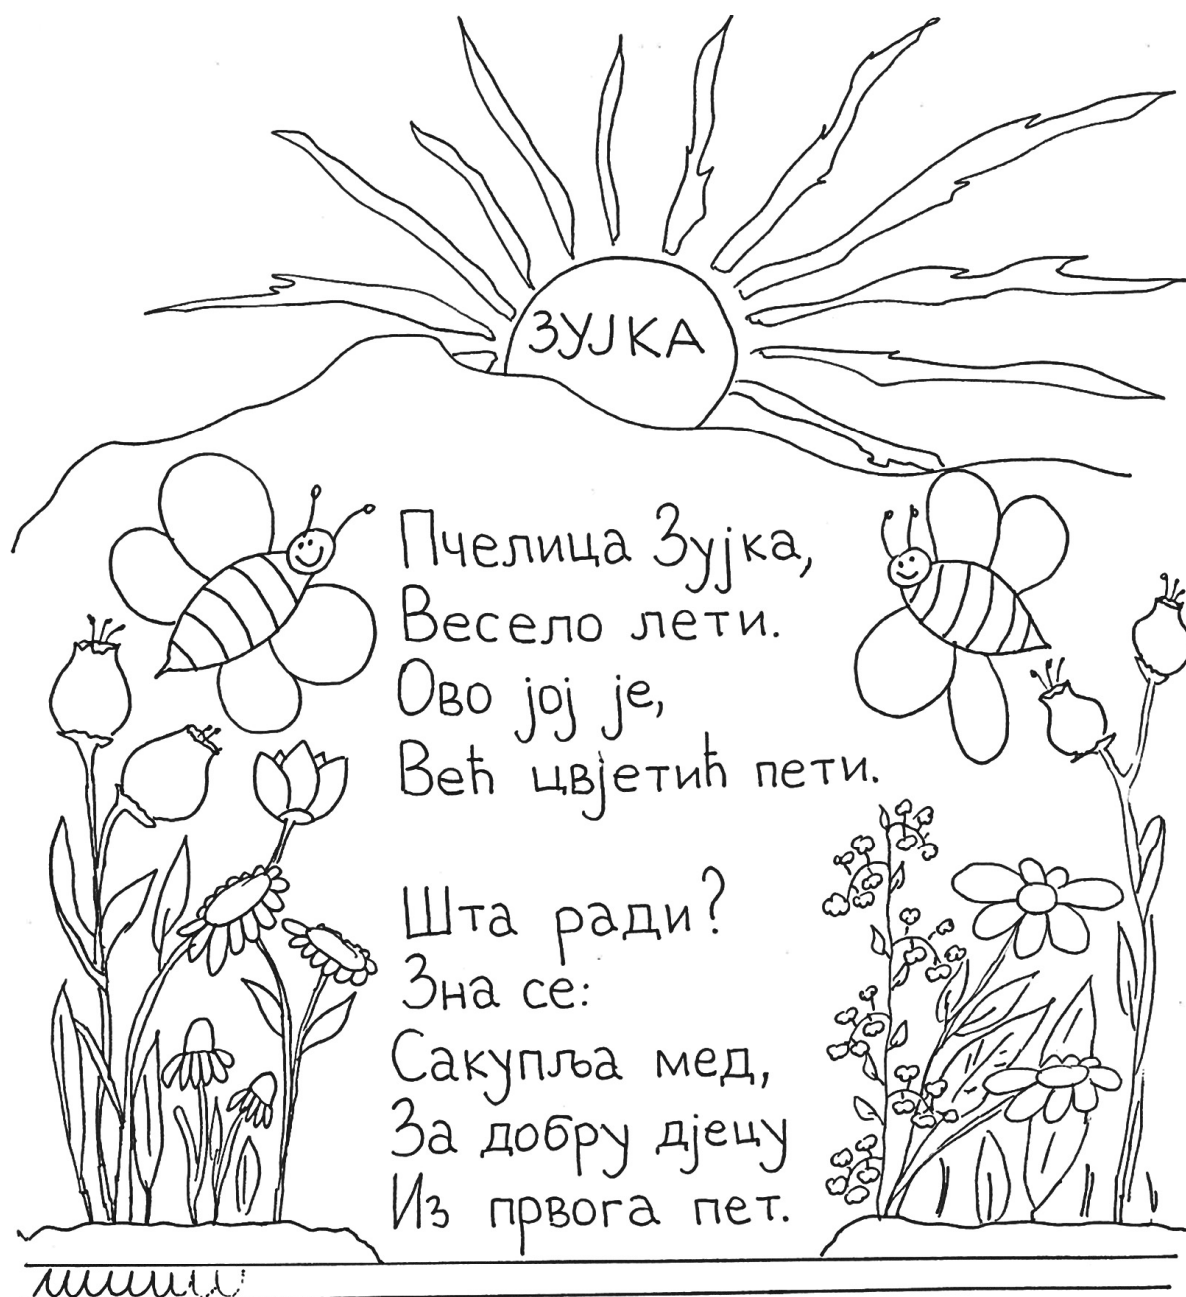 ЗУЈКА
Пчелица Зујка,
Весело лети.
Ово јој је,
Већ цвјетић пети.
Шта ради?
Зна се:
Сакупља мед,
За добру дјецу
Из првога пет.